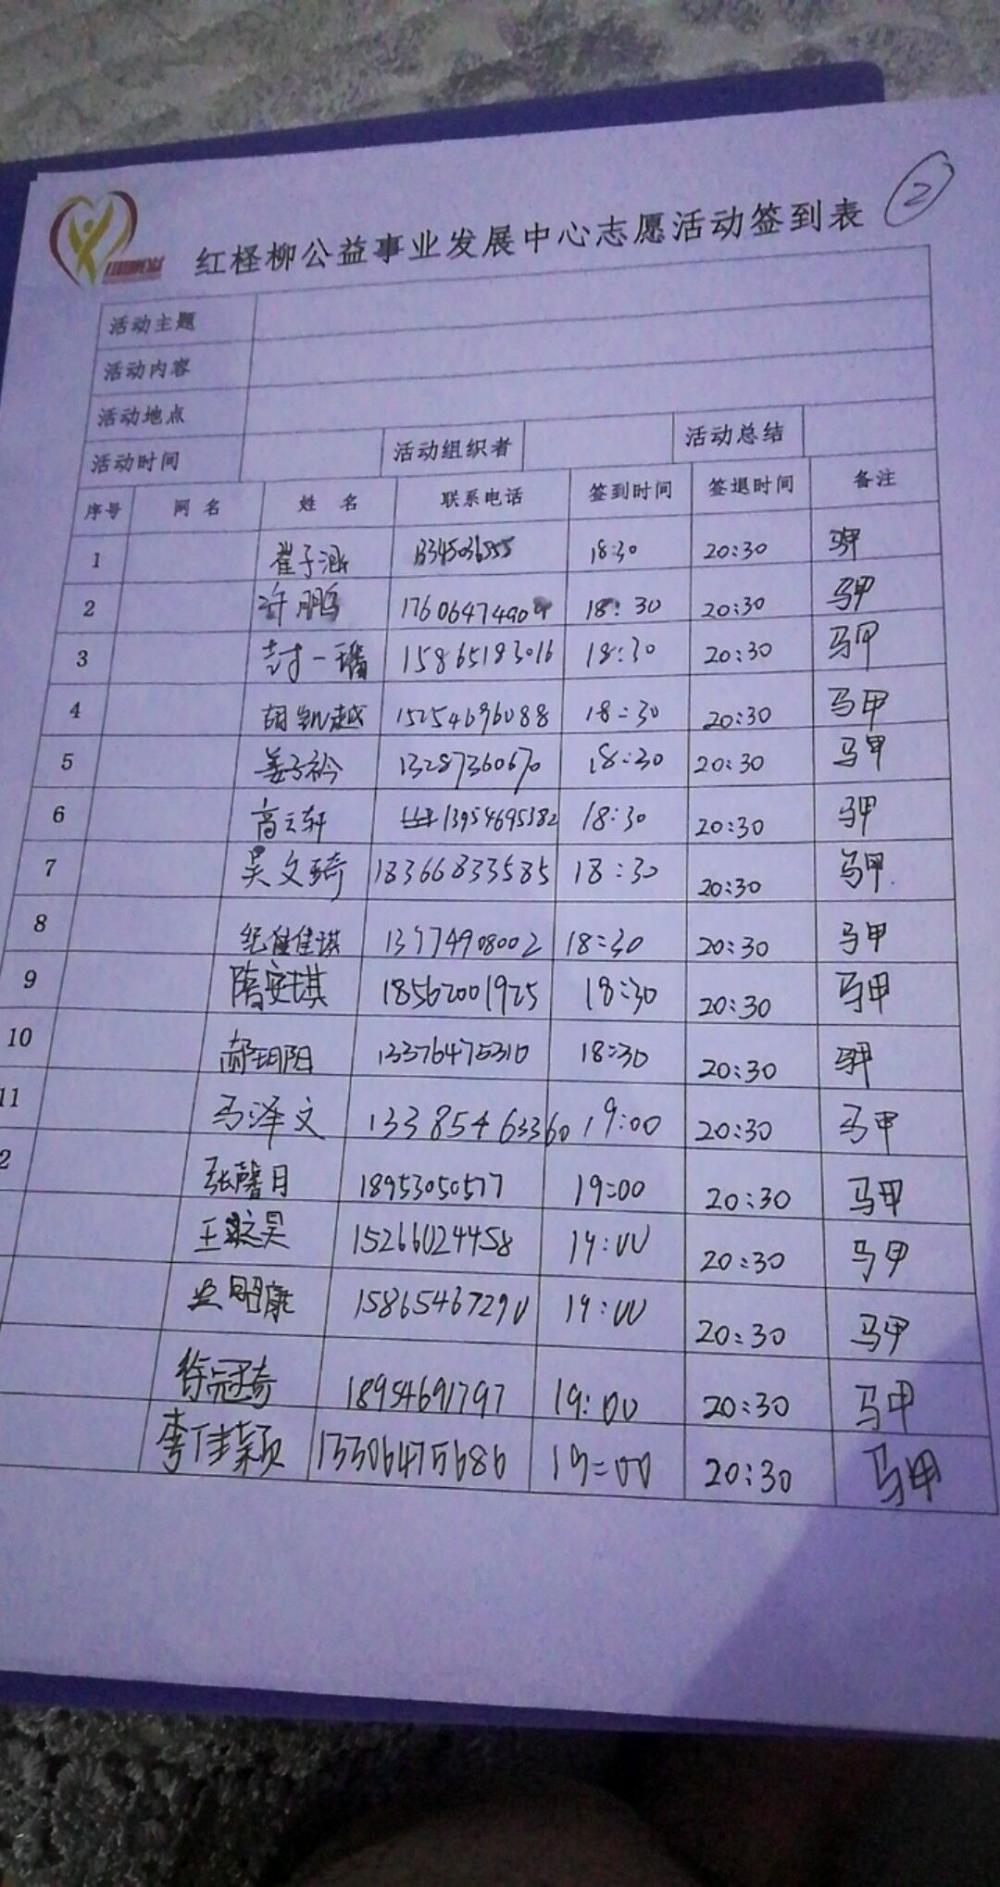 ②
红柽柳公益事业发展中心志愿活动签到表
活动主题
活动内容
活动地点
活动时间 活动组织者 活动总结
序号 网名 姓名 联系电话 签到时间 签退时间 备注
1 崔子涵 13345036555 18:30 20:30 马甲
2 许鹏 1760647490 18:30 20:30 马甲
3 封一璠 15865183016 18:30 20:30 马甲
4 胡凯越 15254696088 18:30 20:30 马甲
5 姜子衿 13287360670 18:30 20:30 马甲
6 高云轩 13954695382 18:30 20:30 马甲
7 吴文琦 18366833585 18:30 20:30 马甲
8 纪佳琪 13774908002 18:30 20:30 马甲
9 隋安琪 18562001925 18:30 20:30 马甲
10 郝玥阳 13376475310 18:30 20:30 马甲
11 马泽文 13385463360 19:00 20:30 马甲
2 张馨月 18953050577 19:00 20:30 马甲
王昊 15266024458 19:00 20:30 马甲
明康 15865467290 19:00 20:30 马甲
徐冠奇 18954691797 19:00 20:30 马甲
李佳颖 13306475686 19:00 20:30 马甲